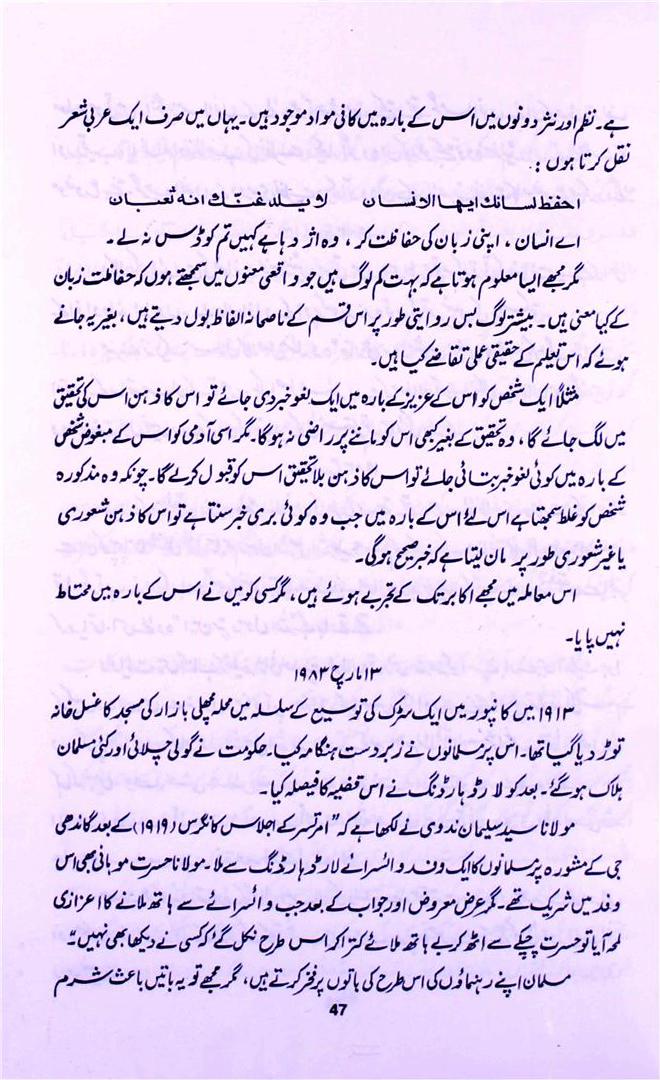 ہے۔ نظم اور نثر دونوں میں اس کے بارہ میں کافی مواد موجود ہیں۔ یہاں میں صرف ایک عربی شعر
نقل کرتا ہوں :
احفظ لسانك ايها الانسان لا يلدغنّك انه ثعبان
اے انسان ، اپنی زبان کی حفاظت کر ، وہ اژدہا ہے کہیں تم کو ڈس نہ لے۔
مگر مجھے ایسا معلوم ہوتا ہے کہ بہت کم لوگ ہیں جو واقعی معنوں میں سمجھتے ہوں کہ حفاظت زبان
کے کیا معنی ہیں۔ بیشتر لوگ بس روایتی طور پر اس قسم کے ناصحانہ الفاظ بول دیتے ہیں ، بغیر یہ جانے
ہوئے کہ اس تعلیم کے حقیقی عملی تقاضے کیا ہیں۔
مثلاً ایک شخص کو اس کے عزیز کے بارہ میں ایک لغو خبر دی جائے تو اس کا ذہن اس کی تحقیق
میں لگ جائے گا ، وہ تحقیق کے بغیر کبھی اس کو ماننے پر راضی نہ ہوگا۔ مگر اسی آدمی کو اس کے مبغوض شخص
کے بارہ میں کوئی لغو خبر بتائی جائے تو اس کا ذہن بلا تحقیق اس کو قبول کرلے گا۔ چونکہ وہ مذکورہ
شخص کو غلط سمجھتا ہے اس لئے اس کے بارہ میں جب وہ کوئی بری خبر سنتا ہے تو اس کا ذہن شعوری
یا غیر شعوری طور پر مان لیتا ہے کہ خبر صحیح ہوگی۔
اس معاملہ میں مجھے اکابر تک کے تجربے ہوئے ہیں ، مگر کسی کو میں نے اس کے بارہ میں محتاط
نہیں پایا۔
۱۳ مارچ ۱۹۸۳
۱۹۱۳ میں کانپور میں ایک سڑک کی توسیع کے سلسلہ میں محلہ مچھلی بازار کی مسجد کا غسل خانہ
توڑ دیا گیا تھا۔ اس پر مسلمانوں نے زبردست ہنگامہ کیا۔ حکومت نے گولی چلائی اور کئی مسلمان
ہلاک ہوگئے۔ بعد کو لارڈ ہارڈنگ نے اس قضیہ کا فیصلہ کیا۔
مولانا سید سلیمان ندوی نے لکھا ہے کہ "امرتسر کے اجلاس کانگرس (۱۹۱۹) کے بعد گاندھی
جی کے مشورہ پر مسلمانوں کا ایک وفد وائسرائے لارڈ ہارڈنگ سے ملا۔ مولانا حسرت موہانی بھی اس
وفد میں شریک تھے۔ مگر عرض معروض اور جواب کے بعد جب وائسرائے سے ہاتھ ملانے کا اعزازی
لمحہ آیا تو حسرت چپکے سے اٹھ کر بے ہاتھ ملائے کترا کر اس طرح نکل گئے کہ کسی نے دیکھا بھی نہیں"۔
مسلمان اپنے رہنماؤں کی اس طرح کی باتوں پر فخر کرتے ہیں ، مگر مجھے تو یہ باتیں باعث شرم
47